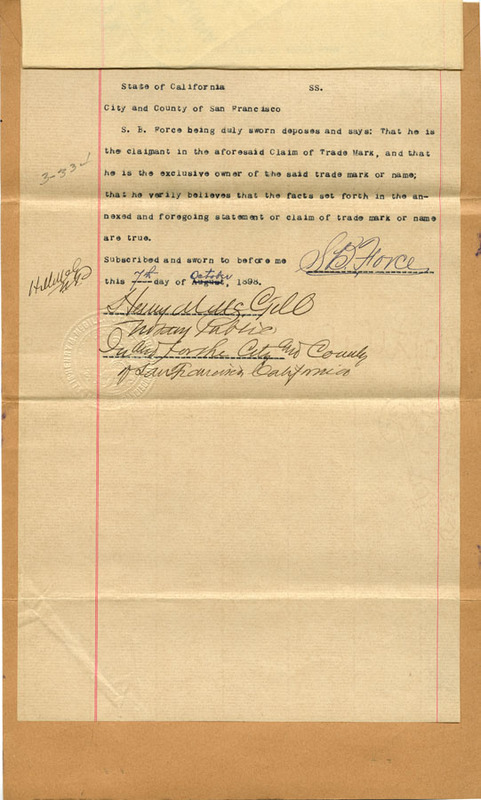 State of California SS.
City and County of San Francisco
S. B. Force being duly sworn deposes and says: That he is
the claimant in the aforesaid Claim of Trade Mark, and that
he is the exclusive owner of the said trade mark or name;
that he verily believes that the facts set forth in the an-
nexed and foregoing statement or claim of trade mark or name
are true.
Subscribed and sworn to before me
S B Force
this 7th day of August October, 1898.
Henry M McGill
Notary Public
In and for the City and County
of San Francisco, California
3-33